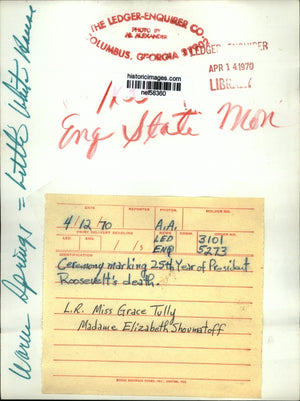 THE LEDGER-ENQUIRER CO.
PHOTO BY
AL ALEXANDER
COLUMBUS, GEORGIA 31902
LEDGER-ENQUIRER
APR 14 1970
LIBRARY
historicimages.com
nef58360
Eng State Mon
Warm Springs = Little White House
DATE
REPORTER
PHOTOG.
HOLDER NO.
4/12/70
A.A.
PRINT DELIVERY DEADLINE
NEWS
COMM.
ORDER NO.
LED
LED
3101
ENQ
5273
IDENTIFICATION
Ceremony marking 25th Year of President
Roosevelt's death.
L.R. Miss Grace Tully
Madame Elizabeth Shoumatoff